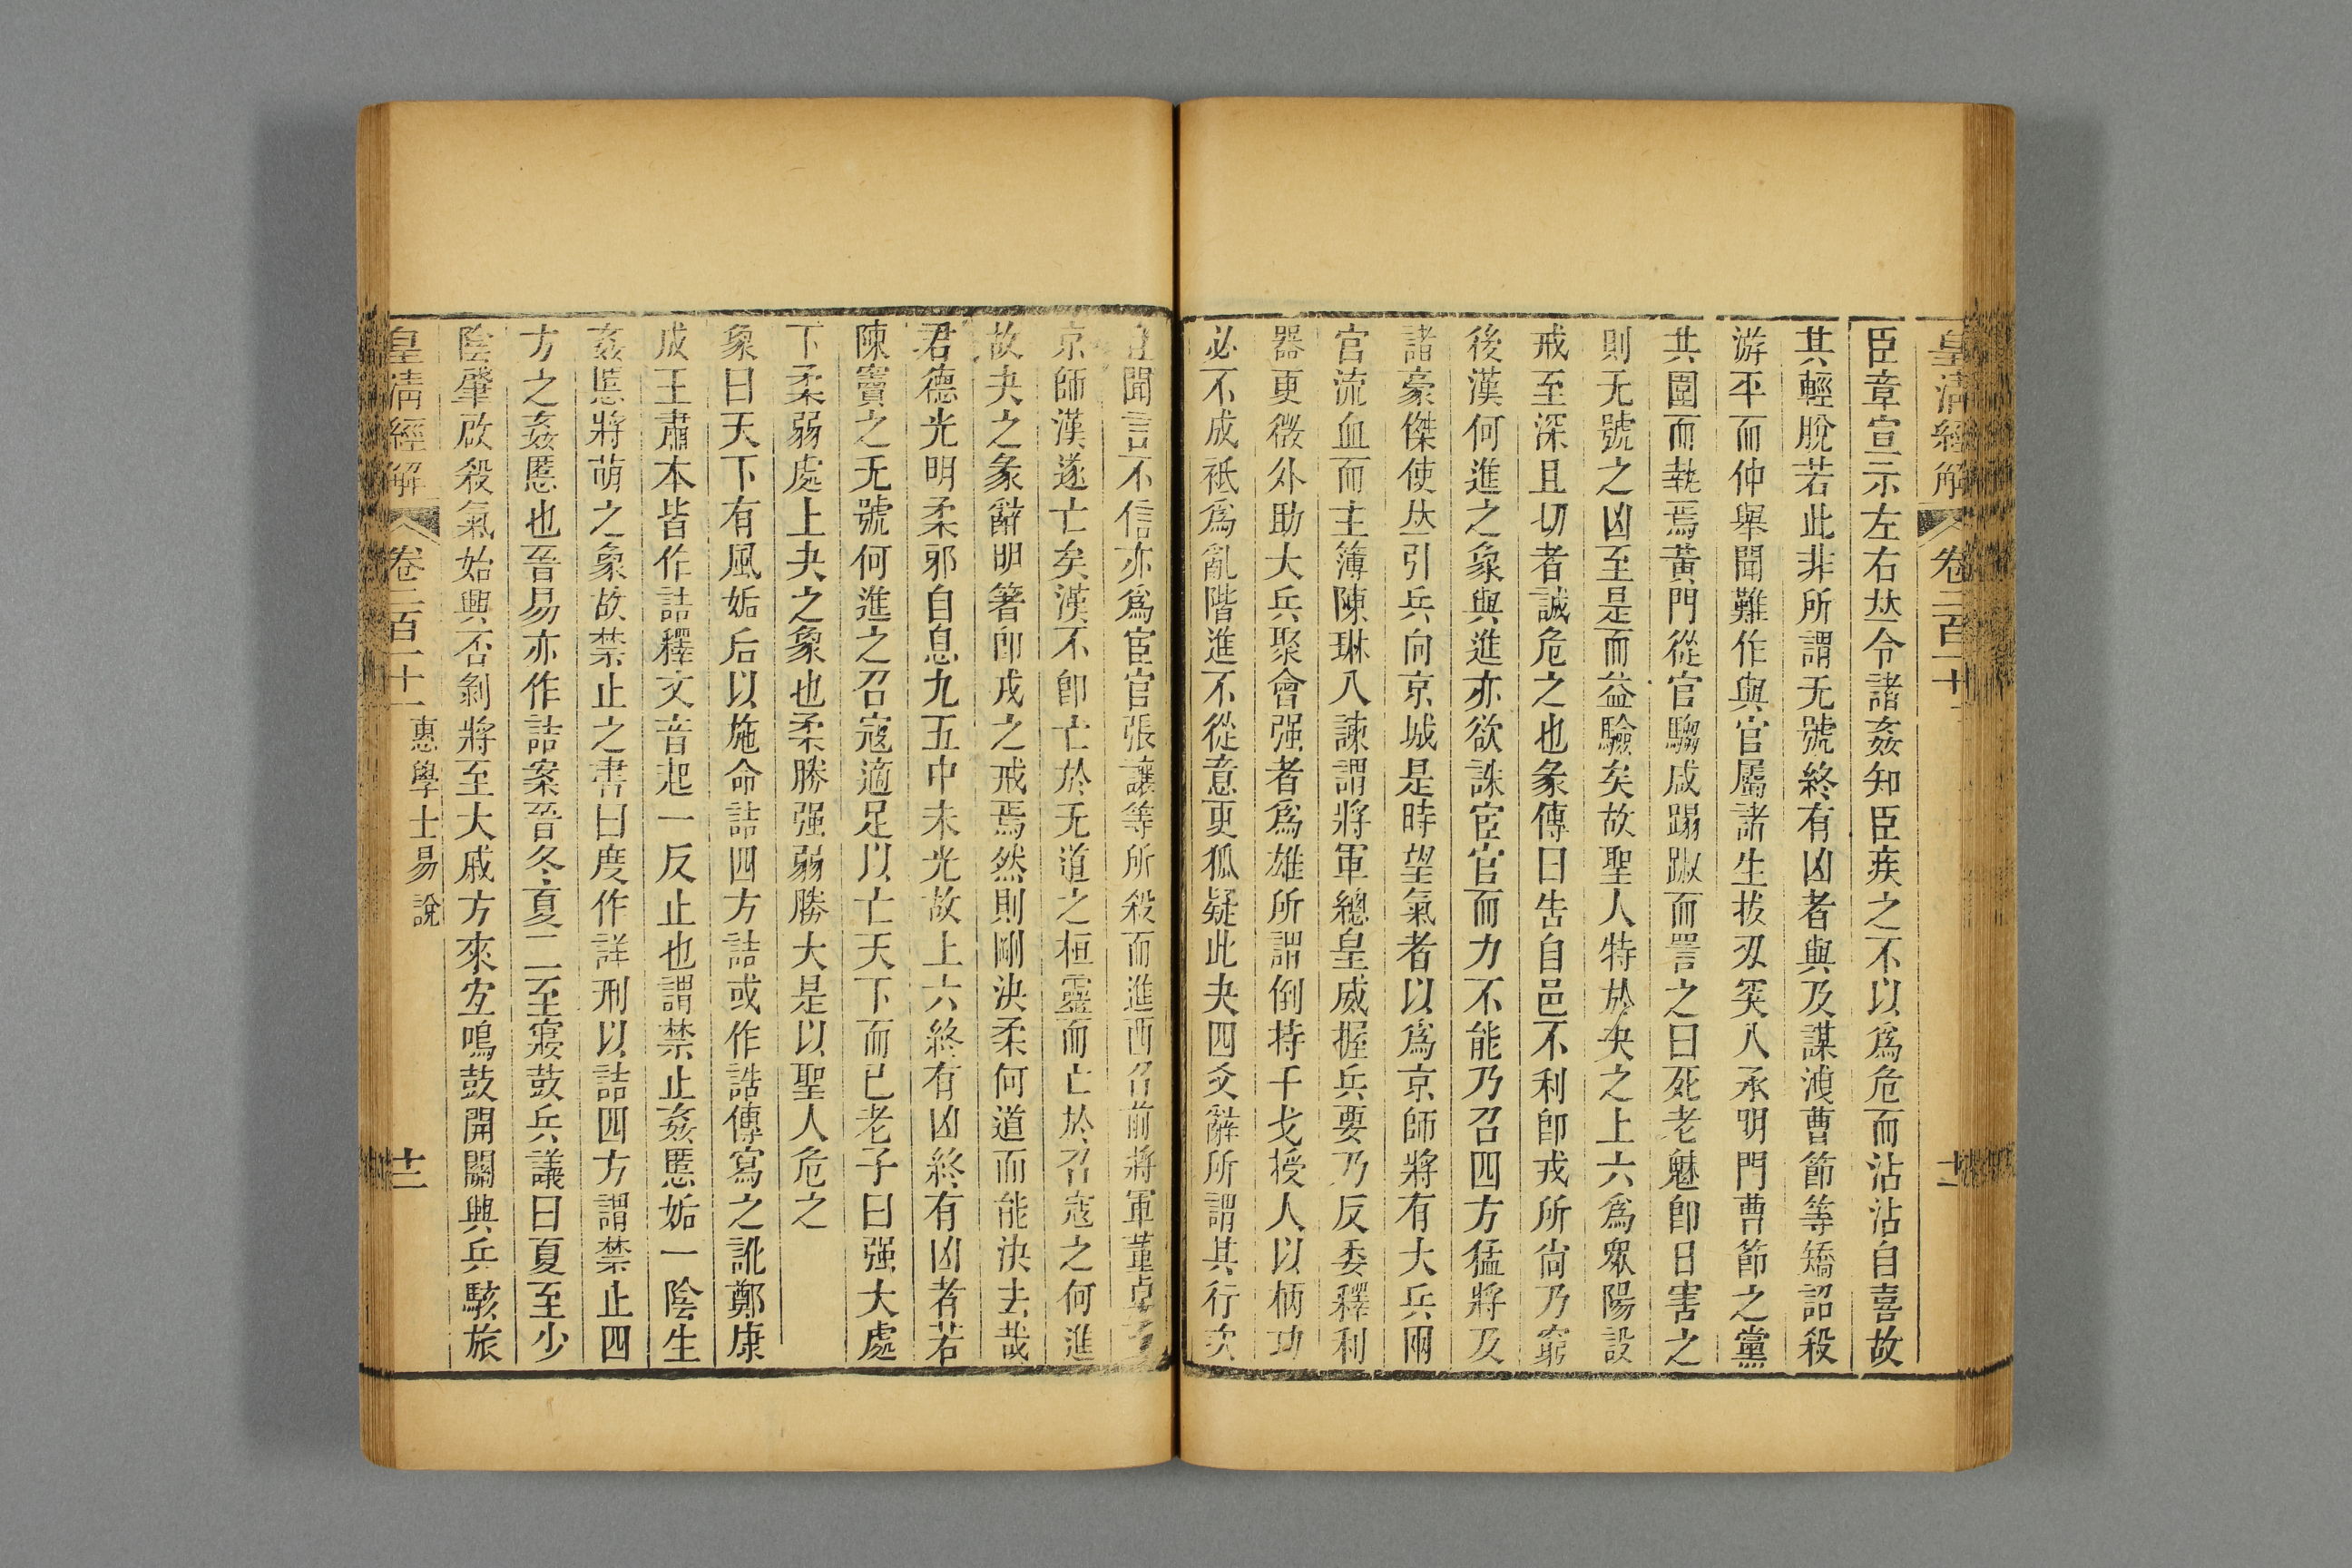 皇清經解 卷二百一十一 十二
臣章宣示左右㚘令諸姦知臣疾之不以爲危而沾沾自喜故
其輕脫若此非所謂无號終有凶者與及謀洩曹節等矯詔殺
游平而仲舉聞難作與官屬諸生拔刃突入承明門曹節之黨
共圍而執焉黃門從官騶咸蹋踧而詈之曰死老魅卽日害之
則无號之凶至是而益驗矣故聖人特於夬之上六爲衆陽設
戒至深且切者誠危之也彖傳曰告自邑不利卽戎所尙乃窮
後漢何進之象與進亦欲誅宦官而力不能乃召四方猛將及
諸豪傑使㚘引兵向京城是時望氣者以爲京師將有大兵兩
官流血而主簿陳琳入諫謂將軍總皇威握兵要乃反委釋利
器更徵外助大兵聚會强者爲雄所謂倒持干戈授人以柄功
必不成祗爲亂階進不從意更狐疑此夬四爻辭所謂其行次
且聞言不信亦爲宦官張讓等所殺而進西召前將軍董卓
京師漢遂亡矣漢不卽亡於无道之桓靈而亡於召寇之何進
故夬之彖辭明著卽戎之戒焉然則剛決柔何道而能決去哉
君德光明柔邪自息九五中未光故上六終有凶終有凶者若
陳竇之无號何進之召寇適足以亡天下而已老子曰强大處
下柔弱處上夬之象也柔勝强弱勝大是以聖人危之
象曰天下有風姤后以施命誥四方誥或作誥傳寫之訛鄭康
成王肅本皆作詰釋文音起一反止也謂禁止姦慝姤一陰生
姦慝將萌之象故禁止之書曰度作詳刑以詰四方謂禁止四
方之姦慝也晉易亦作詰案晉冬夏二至寢鼓兵議曰夏至少
陰肇啟殺氣始興否剝將至大戚方來宐鳴鼓開關興兵駭旅
皇清經解 卷二百一十一 惠學士易說 十二